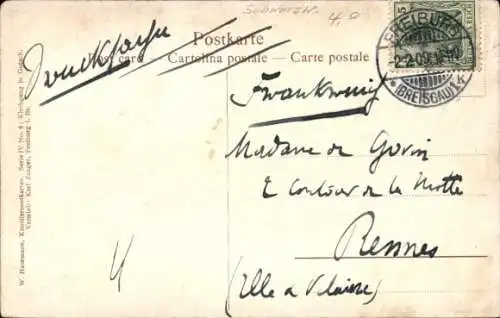 Schwarzw.
4.
Drucksache
Postkarte
Post card — Cartolina postale — Carte postale
FREIBURG
2.2.09.
* (BREISGAU) 1 K
Frankreich
Madame de
2 Contour de la Motte
Rennes
(Ille & Vilaine)
4
W. Hasemann, Künstlerpostkarten. Serie IV No.
Verlag: Karl Zwiger, Freiburg i. Br.